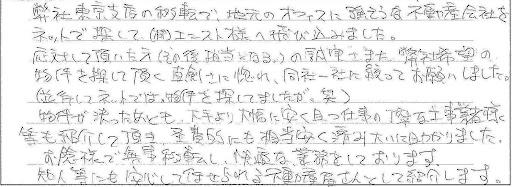 弊社東京支店の移転で、地元のオフィスに強そうな不動産会社を
ネットで探して、(株)エニスト様へ飛び込みました。
応対して頂いた方(その後担当となる。)の誠実さまた弊社希望の
物件を探して頂く真剣さに惚れ、同社一社に絞ってお願いしました。
(並行してネットでは、物件を探してましたが。笑)
物件が決ったあとも、大手より大幅に安く且つ仕事の丁寧な工事業者様
等も紹介して頂き、予算的にも相当安く済み大いに助かりました。
お陰様で無事移転し、快適な業務をしております。
知人等にも安心して任せられる不動産屋さんとして紹介します。